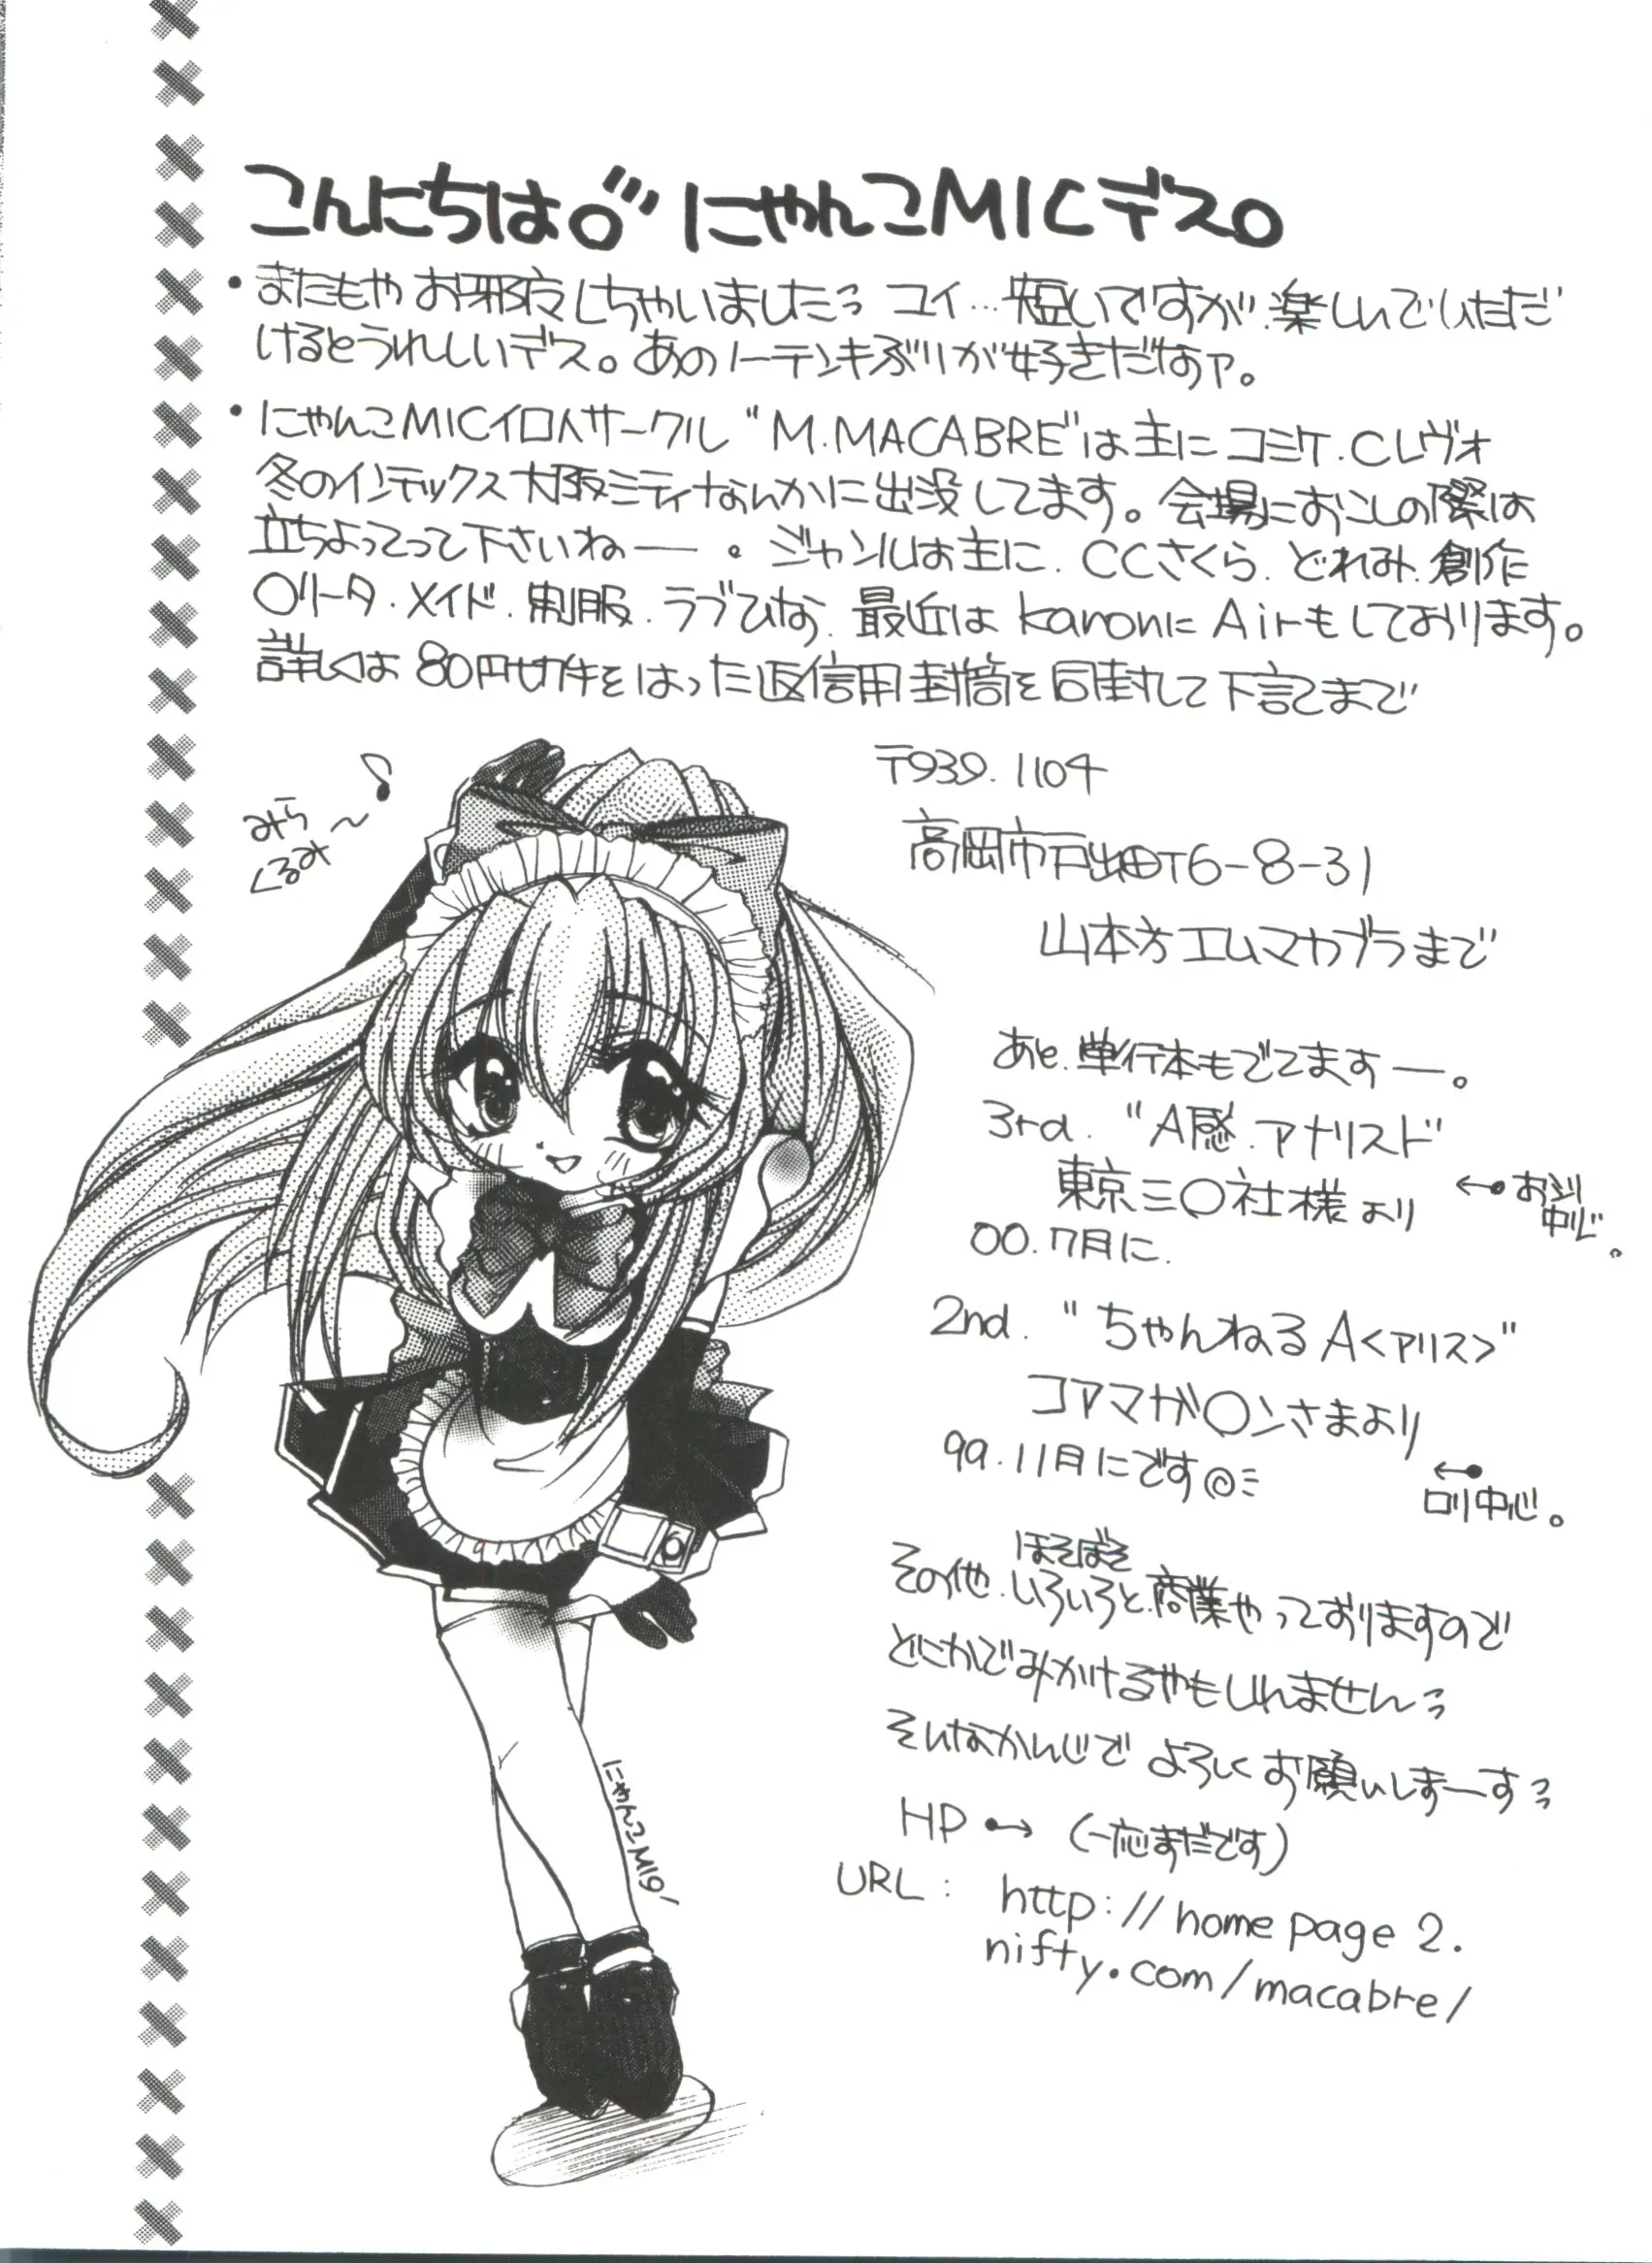 こんにちは♂ にゃんこMICデス。
・またもやお邪魔しちゃいましたっ コイ…短いですが、楽しんでいただ
けるとうれしいデス。あのノーテンキぶりが好きだなァ。
・にゃんこMIC個人サークル "M.MACABRE"は主に コミケ.Cレヴォ
冬のインテックス大阪シティなんかに出没してます。会場におこしの際は
立ちよってって下さいねー。ジャンルは主に.CCさくら.どれみ.創作
〇リータ.メイド.制服.ラブひな.最近は kanonに Airもしております。
詳しくは 80円切手をはった返信用封筒を同封して下記まで
みら
くるみ〜♪
〒939.1104
高岡市戸出町6-8-31
山本方エムマカブラまで
あと.単行本もでてますー。
3rd. "A感.アナリスト"
東京三〇社様より
00.7月に.
←•おシリ
中心。
2nd. "ちゃんねるA<アリス>"
コアマガ〇ンさまより
99.11月にです@ミ
←•
ロリ中心。
ほそぼそ
その他.いろいろと.商業やっておりますので
どこかでみかけるやもしれませんっ
そんなかんじで よろしくお願いしまーすっ
にゃんこMIC!
HP •→ (一応まだです)
URL: http://homepage2.
nifty.com/macabre/